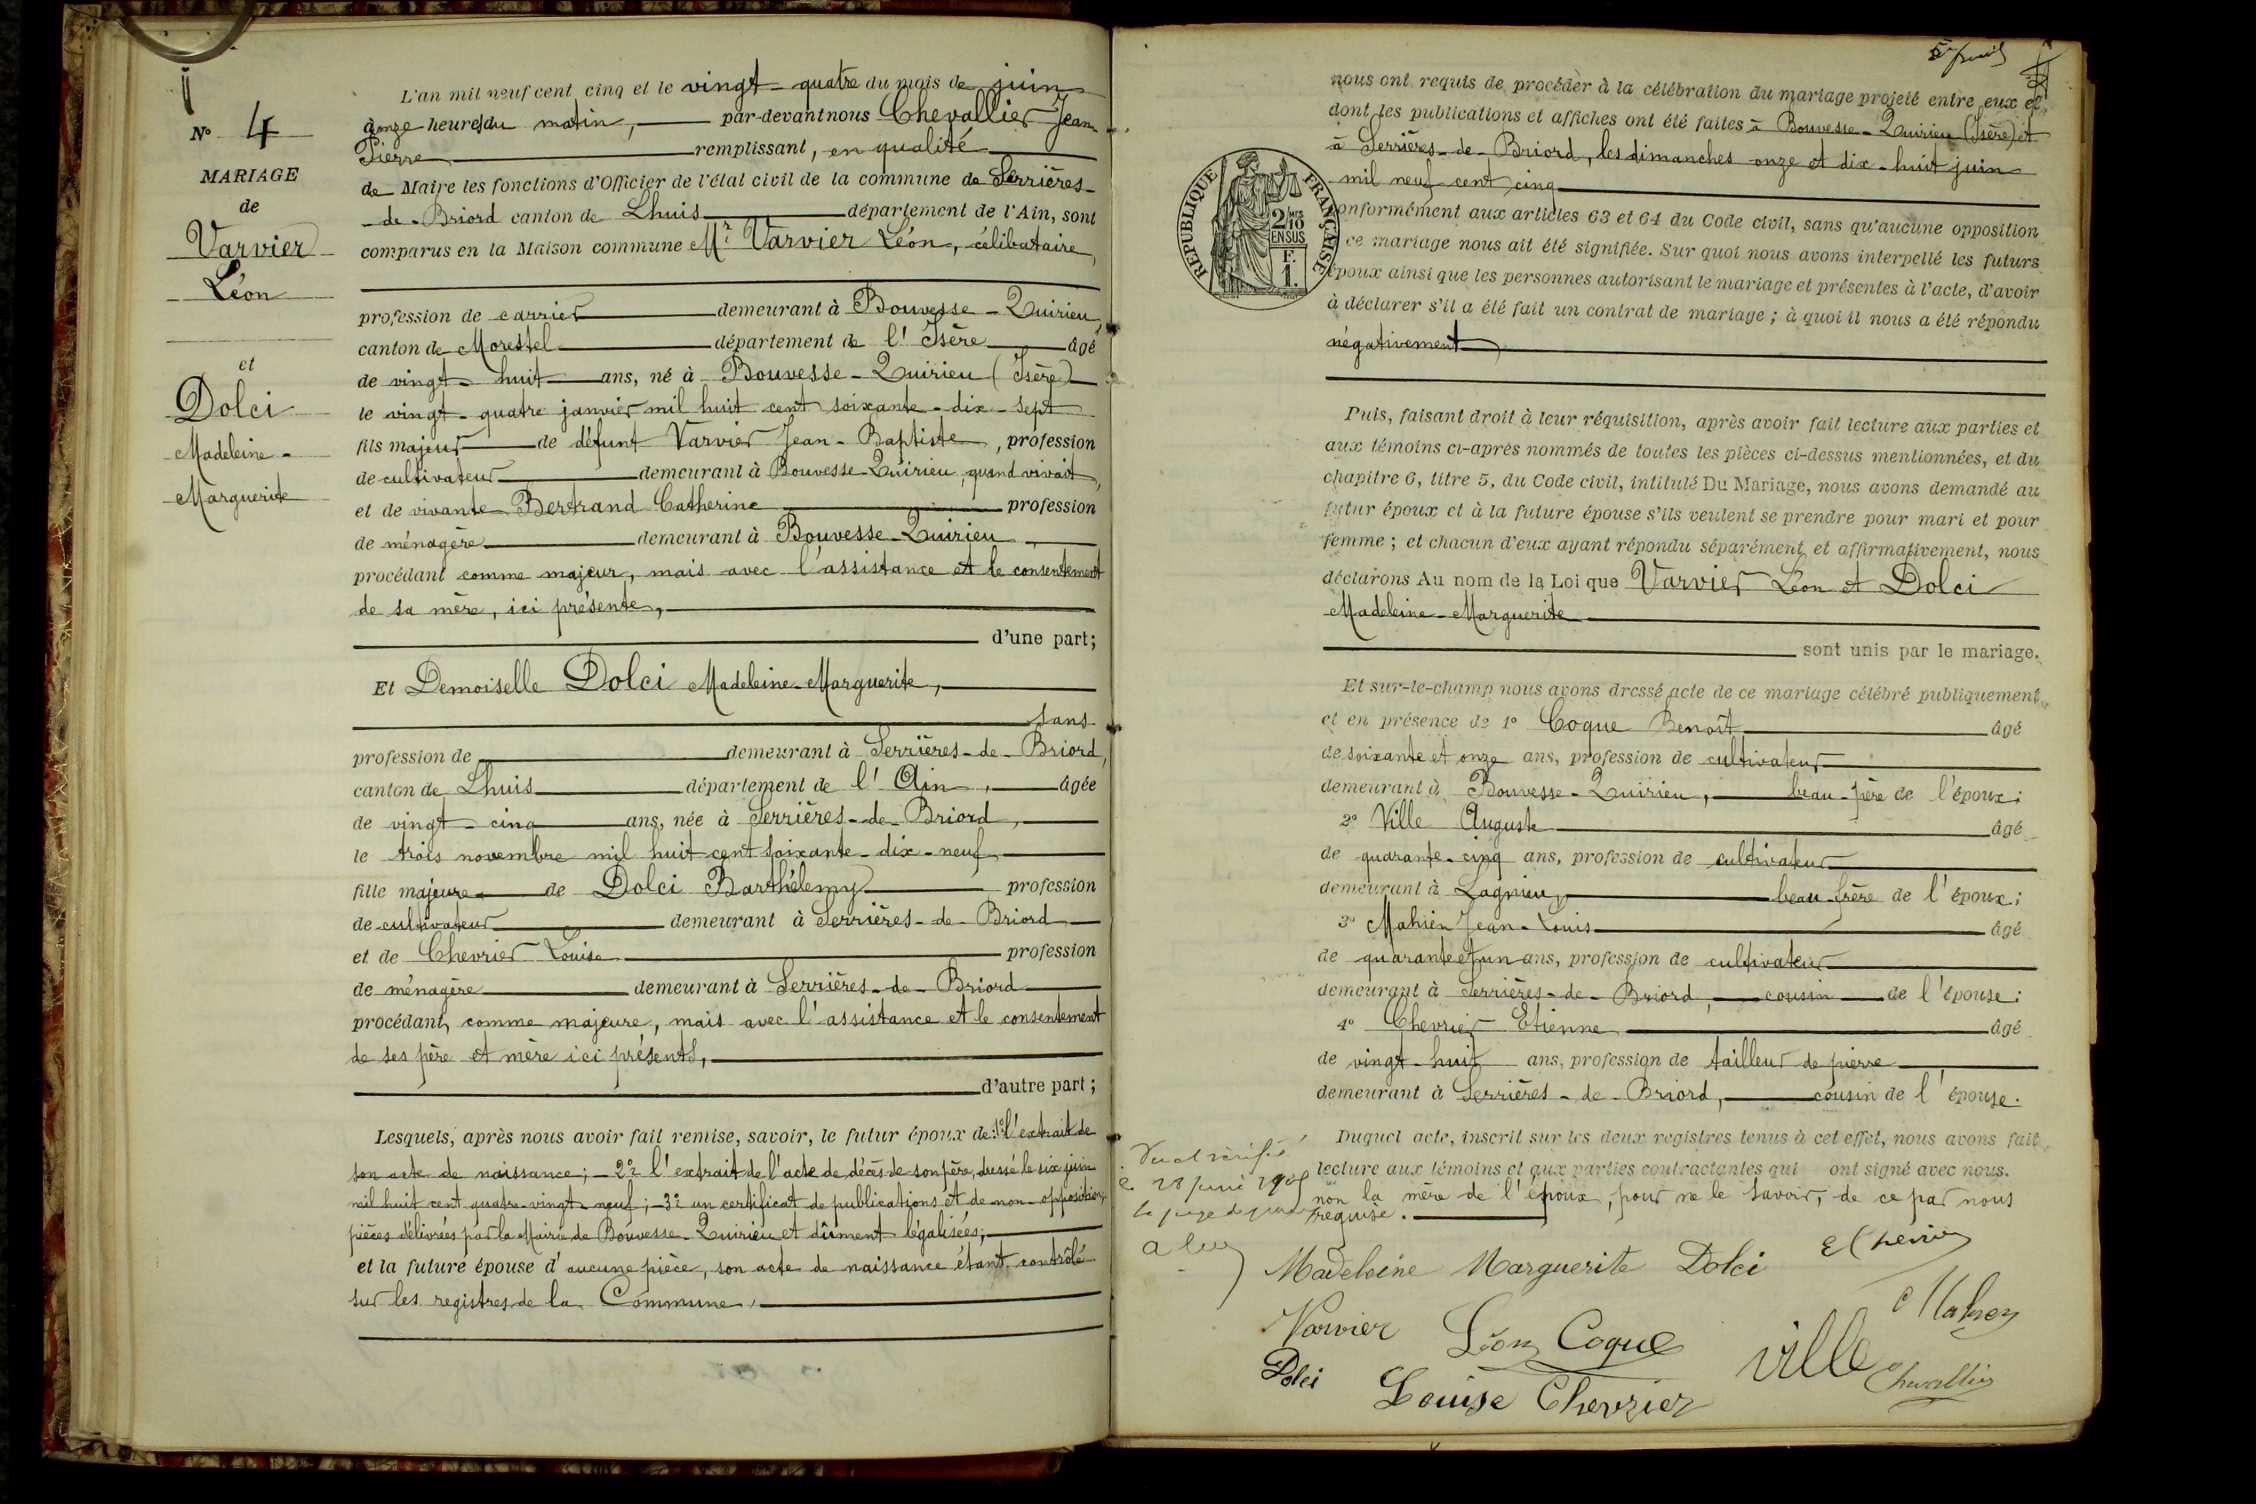 N° 4
MARIAGE
de
Varvier
Léon
et
Dolci
Madeleine-
Marguerite
L'an mil neuf cent cinq et le vingt-quatre du mois de juin
à onze heures du matin, par-devant nous Chevallier Jean
Pierre remplissant, en qualité
de Maire les fonctions d'Officier de l'état civil de la commune de Serrières-
-de-Briord canton de Lhuis département de l'Ain, sont
comparus en la Maison commune Mr Varvier Léon, célibataire,
profession de carrier demeurant à Bouvesse-Quirieu,
canton de Morestel département de l'Isère âgé
de vingt-huit ans, né à Bouvesse-Quirieu (Isère)
le vingt-quatre janvier mil huit cent soixante-dix-sept
fils majeur de défunt Varvier Jean-Baptiste, profession
de cultivateur demeurant à Bouvesse-Quirieu, quand vivait,
et de vivante Bertrand Catherine profession
de ménagère demeurant à Bouvesse-Quirieu,
procédant comme majeur, mais avec l'assistance et le consentement
de sa mère, ici présente,
d'une part;
Et Demoiselle Dolci Madeleine-Marguerite,
sans
profession de demeurant à Serrières-de-Briord,
canton de Lhuis département de l'Ain, âgée
de vingt-cinq ans, née à Serrières-de-Briord,
le trois novembre mil huit cent soixante-dix-neuf
fille majeure de Dolci Barthélemy profession
de cultivateur demeurant à Serrières-de-Briord
et de Chevrier Louise profession
de ménagère demeurant à Serrières-de-Briord
procédant, comme majeure, mais avec l'assistance et le consentement
de ses père et mère ici présents,
d'autre part;
Lesquels, après nous avoir fait remise, savoir, le futur époux de: 1° l'extrait de
son acte de naissance; - 2° l'extrait de l'acte de décès de son père, dressé le six juin
mil huit cent quatre-vingt-neuf; - 3° un certificat de publications et de non-opposition,
pièces délivrées par la Mairie de Bouvesse-Quirieu et dûment légalisées;
et la future épouse d'aucune pièce, son acte de naissance étant contrôlé
sur les registres de la Commune,
nous ont requis de procéder à la célébration du mariage projeté entre eux et
dont les publications et affiches ont été faites à Bouvesse-Quirieu (Isère) et
à Serrières-de-Briord, les dimanches onze et dix-huit juin
mil neuf cent cinq
RÉPUBLIQUE FRANÇAISE
2/10 EN SUS
F. 1.
onformément aux articles 63 et 64 du Code civil, sans qu'aucune opposition
ce mariage nous ait été signifiée. Sur quoi nous avons interpellé les futurs
époux ainsi que les personnes autorisant le mariage et présentes à l'acte, d'avoir
à déclarer s'il a été fait un contrat de mariage; à quoi il nous a été répondu
négativement
Puis, faisant droit à leur réquisition, après avoir fait lecture aux parties et
aux témoins ci-après nommés de toutes les pièces ci-dessus mentionnées, et du
chapitre 6, titre 5, du Code civil, intitulé Du Mariage, nous avons demandé au
futur époux et à la future épouse s'ils veulent se prendre pour mari et pour
femme; et chacun d'eux ayant répondu séparément et affirmativement, nous
déclarons Au nom de la Loi que Varvier Léon et Dolci
Madeleine-Marguerite
sont unis par le mariage.
Et sur-le-champ nous avons dressé acte de ce mariage célébré publiquement
et en présence de 1° Coque Benoît âgé
de soixante et onze ans, profession de cultivateur
demeurant à Bouvesse-Quirieu, beau-père de l'époux;
2° Ville Auguste âgé
de quarante-cinq ans, profession de cultivateur
demeurant à Lagnieu, beau-frère de l'époux;
3° Mahien Jean-Louis âgé
de quarante et un ans, profession de cultivateur
demeurant à Serrières-de-Briord, cousin de l'épouse;
4° Chevrier Etienne âgé
de vingt-huit ans, profession de tailleur de pierre
demeurant à Serrières-de-Briord, cousin de l'épouse.
Duquel acte, inscrit sur les deux registres tenus à cet effet, nous avons fait
lecture aux témoins et aux parties contractantes qui ont signé avec nous.
non la mère de l'époux, pour ne le savoir, de ce par nous
requise.
Vu et vérifié
28 1905
le juge de
Madeleine Marguerite Dolci E Chevrier
Varvier Léon Coque Ville
Dolci Louise Chevrier Chevallier